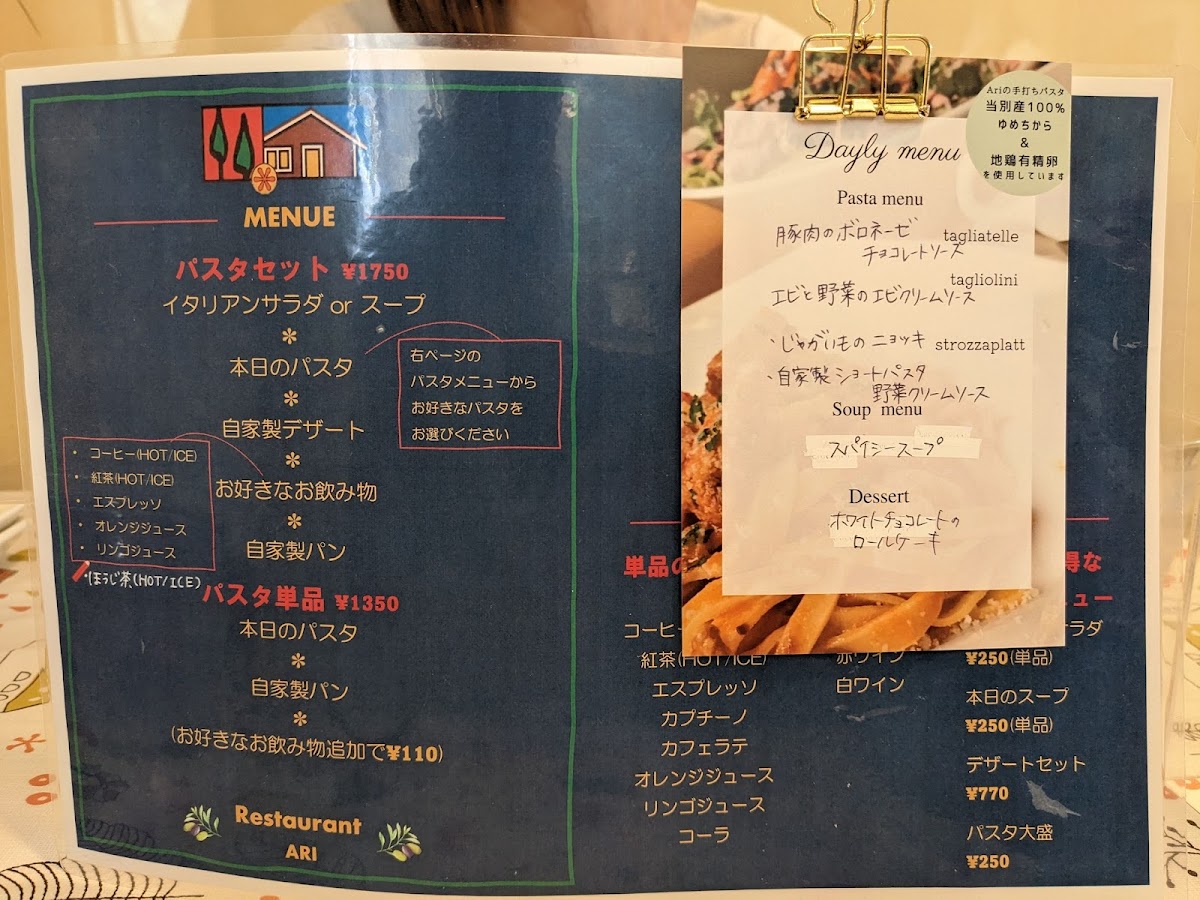 MENUE
パスタセット ¥1750
イタリアンサラダ or スープ
*
本日のパスタ
*
自家製デザート
*
お好きなお飲み物
*
自家製パン
右ページの
パスタメニューから
お好きなパスタを
お選びください
・ コーヒー(HOT/ICE)
・ 紅茶(HOT/ICE)
・ エスプレッソ
・ オレンジジュース
・ リンゴジュース
・ほうじ茶(HOT/ICE)
パスタ単品 ¥1350
本日のパスタ
*
自家製パン
*
(お好きなお飲み物追加で¥110)
Restaurant
ARI
Ariの手打ちパスタ
当別産100%
ゆめちから
&
地鶏有精卵
を使用しています
Dayly menu
Pasta menu
豚肉のボロネーゼ tagliatelle
チョコレートソース
tagliolini
エビと野菜のエビクリームソース
・じゃがいものニョッキ strozzaplatt
・自家製ショートパスタ
野菜クリームソース
Soup menu
スパイシースープ
Dessert
ホワイトチョコレートの
ロールケーキ
単品の
コーヒ
紅茶(HOT/ICE)
エスプレッソ
カプチーノ
カフェラテ
オレンジジュース
リンゴジュース
コーラ
赤ワイン
白ワイン
得な
ュー
ラダ
¥250(単品)
本日のスープ
¥250(単品)
デザートセット
¥770
パスタ大盛
¥250